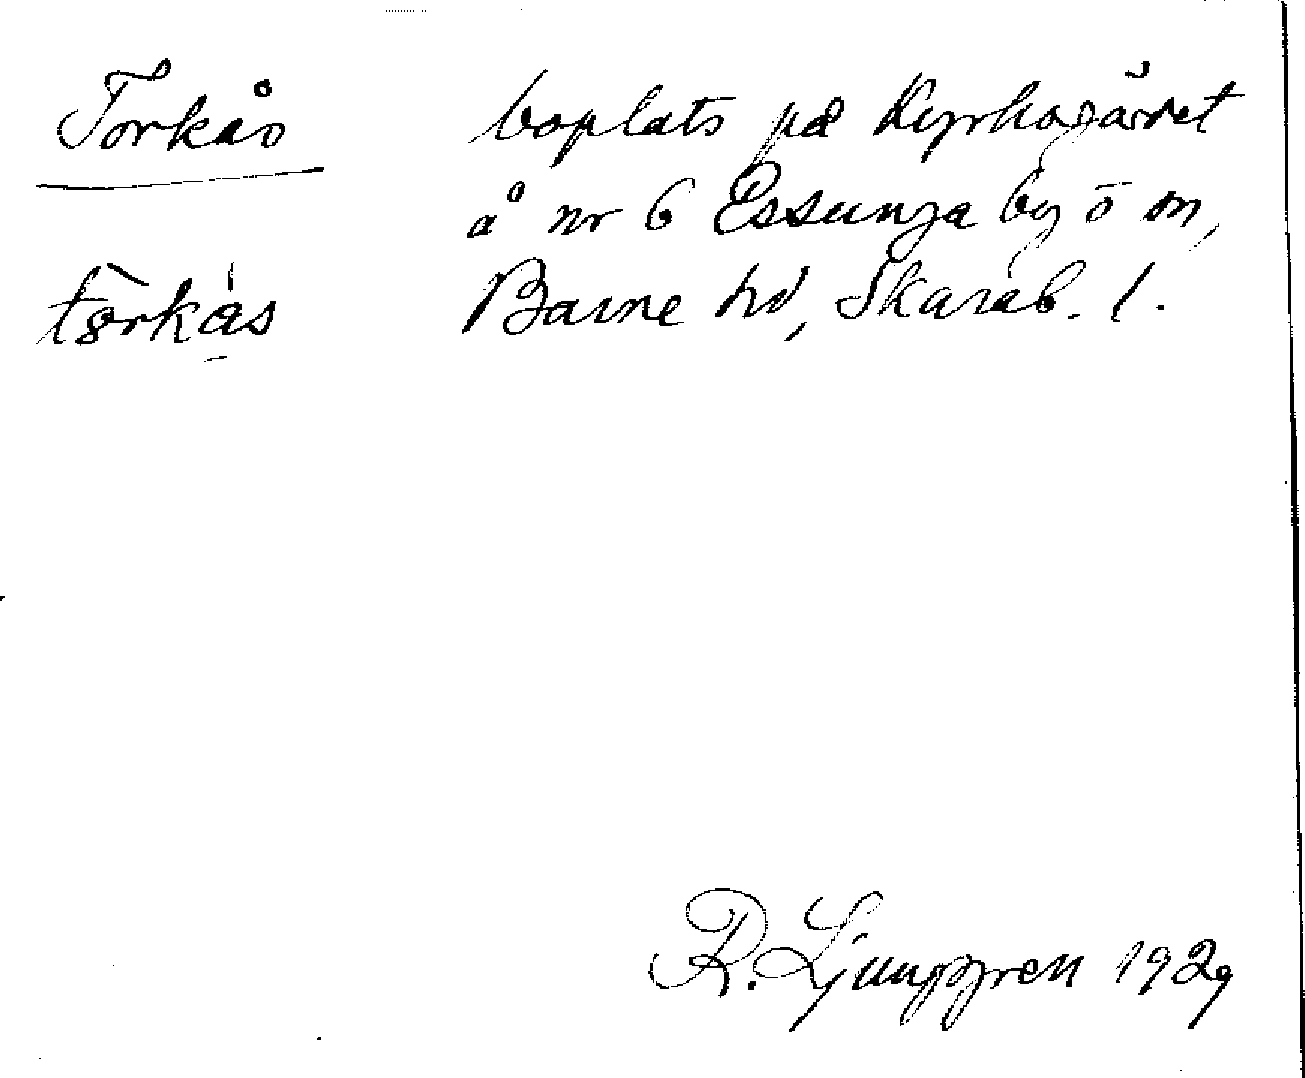 Torkås
boplats på Kyrkogärdet
å nr 6 Essunga by o sn,
tørkås
Barne hd, Skarab. l.
R. Ljunggren 1929